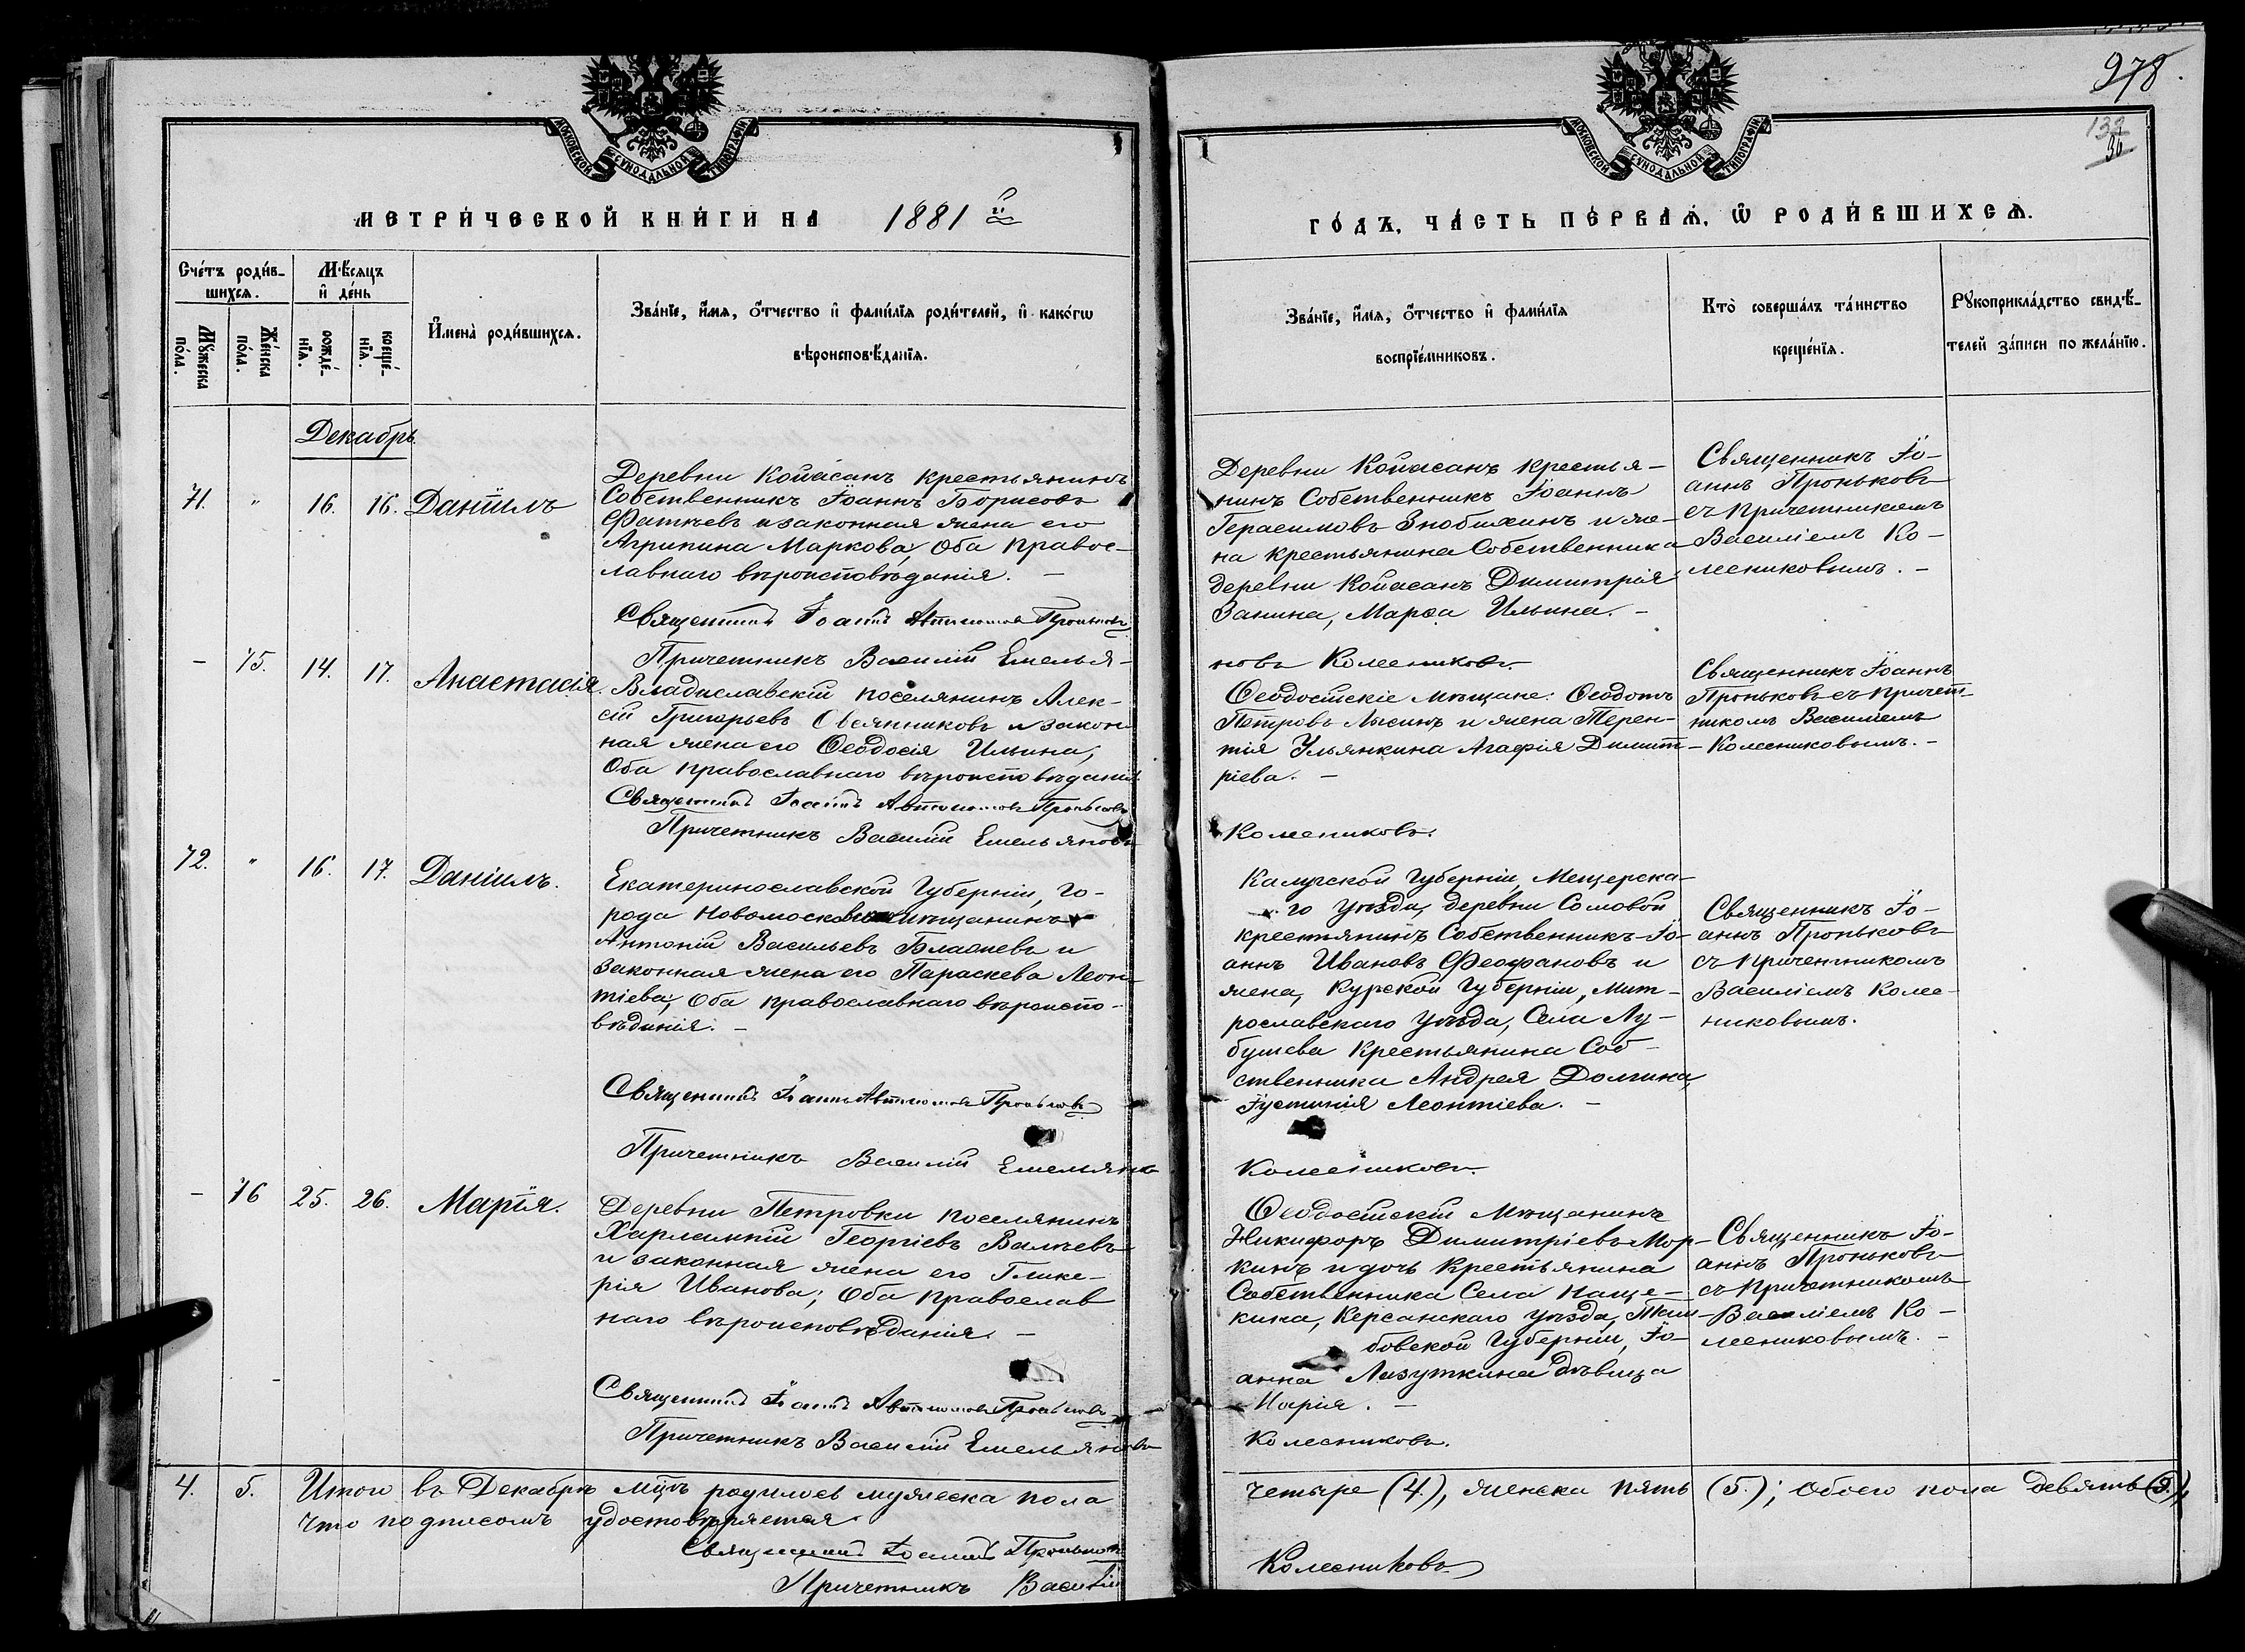 978.
132
36
МОСКОВСКОЙ СУНОДАЛЬНОЙ ТИПОГРАФІИ
МЕТРИ́ЧЕСКОЙ КНИ́ГИ НА 1881 й
Счéтъ роди́в-
шихсѧ.
М'ѣсѧцъ
и҆ дéнь
Мꙋ́жеска
по́ла.
Же́нска
по́ла.
рожде́-
нїѧ.
креще́-
нїѧ.
И҆менà роди́вшихсѧ.
Зва́нїе, и҆́мѧ, ѻ҆́тчество и҆ фами́лїѧ роди́телей, и҆ како́гѡ
в'ѣроиспов'ѣданїѧ.
Декабрь.
71. " 16. 16. Даніилъ
Деревни Коиасанъ крестьянинъ
Собственникъ Іоаннъ Борисовъ
Фатѣевъ и законная жена его
Агрипина Маркова; Оба правос-
лавнаго вѣроисповѣданія. —
Священникъ Іоаннъ Автономовъ Проньковъ
Причетникъ Василій Емелья-
- 75. 14. 17. Анастасія.
Владиславскій поселянинъ Алек-
сій Григорьевъ Овсянниковъ и закон-
ная жена его Ѳеодосія Ильина,
Оба православнаго вѣроисповѣданія.
Священникъ Іоаннъ Автономовъ Проньковъ
Причетникъ Василій Емельяновъ
72. " 16. 17. Даніилъ.
Екатеринославской Губерніи, го-
рода мѣщанинъ
Антоній Васильевъ Власіевъ и
законная жена его Параскева Леон-
тіева; Оба православнаго вѣроиспо-
вѣданія. —
Священникъ Іоаннъ Автономовъ Проньковъ
Причетникъ Василій Емельяно
- 76 25. 26. Марія.
Деревни Петровки поселянинъ
Харлампій Георгіевъ Валчевъ
и законная жена его Глике-
рія Иванова; Оба православ
наго вѣроисповѣданія. —
Священникъ Іоаннъ Автономовъ Проньковъ
Причетникъ Василій Емельяновъ
4. 5. Итого въ Декабрѣ мцѣ родилось мужеска пола
что подписомъ удостовѣряется
Священникъ Іоаннъ Проньковъ
Причетникъ Василій
МОСКОВСКОЙ СУНОДАЛЬНОЙ ТИПОГРАФІИ
ГО́ДЪ, ЧА́СТЬ ПЕ́РВАѦ, Ѡ҆ РОДИ́ВШИХСѦ.
Зва́нїе, и҆́мѧ, ѻ҆́тчество и҆ фами́лїѧ
воспрїе́мниковъ.
Ктò соверша́лъ та́инство
креще́нїѧ.
Рꙋкоприкла́дство свид'ѣ-
телей за́писи по жела́нїю.
Деревни Коиасанъ крестья-
нинъ Собственникъ Іоаннъ
Герасимовъ Знобихинъ и же-
на крестьянина Собственника
деревни Коиасанъ Димитрія
Занина, Марѳа Ильина. —
Священникъ Іо-
аннъ Проньковъ
съ причетникомъ
Василіемъ Ко-
лесниковымъ. —
новъ Колесниковъ.
Ѳеодосійскіе мѣщане: Ѳеодотъ
Петровъ Лысинъ и жена Терен-
тія Ульянкина Агафія Димит-
ріева. —
Священникъ Іоаннъ
Проньковъ съ причет-
никомъ Василіемъ
Колесниковымъ. —
Колесниковъ.
Калужской Губерніи, Мещерска-
го уѣзда, деревни Соловой
крестьянинъ Собственникъ Іо-
аннъ Ивановъ Феофановъ и
жена, Курской Губерніи, Мит-
рославскаго уѣзда, Села Лу-
бушева крестьянина Соб-
ственника Андрея Долгина,
Іустинія Леонтіева. —
Священникъ Іо-
аннъ Проньковъ
съ причетникомъ
Василіемъ Колес-
никовымъ.
Колесниковъ.
Ѳеодосійскій мѣщанинъ
Никифоръ Димитріевъ Мор-
кинъ и дочь крестьянина
Собственника Села Наще-
кина, Керсанскаго уѣзда, Там-
бовской Губерніи, Іо-
анна Лазуткина дѣвица
Марія. —
Священникъ Іо-
аннъ Проньковъ
съ причетникомъ
Василіемъ Ко-
лесниковымъ. —
Колесниковъ.
четыре (4.), женска пять (5.); обоего пола девять (9.),
Колесниковъ